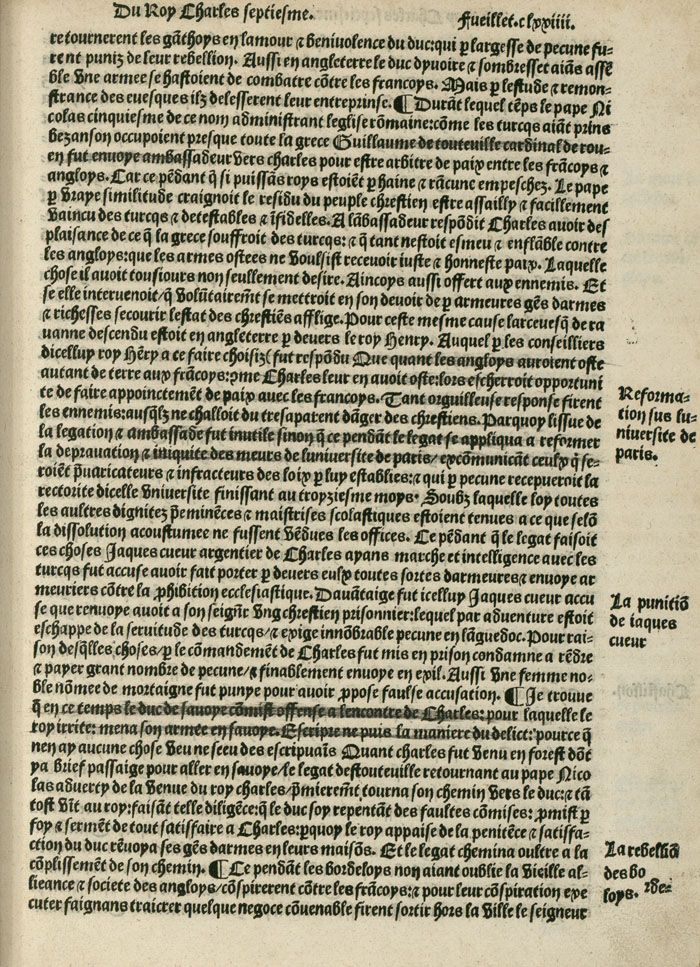 Du Roy Charles septiesme.
Fueillet.clxxiiii.
retournerent les gãthoys en lamour ⁊ beniuolence du duc:qui ꝑ largesse de pecune fu-
rent puniz de leur rebellion. Aussi en angleterre le duc dyuoire ⁊ sombresset aiãs assẽ
ble vne armee se hastoient de combatre cõtre les francoys. Mais ꝑ lestude ⁊ remon-
strance des euesques ilz delesserent leur entreprinse. ¶ Durãt lequel tẽps le pape Ni
colas cinquiesme de ce nom administrant leglise rõmaine:cõme les turcqs aiãt prins
bezanson occupoient presque toute la grece Guillaume de touteuille cardinal de rou-
en fut enuoye ambassadeur vers charles pour estre arbitre de paix entre les frãcoys ⁊
angloys. Car ce pẽdant q̃ si puissãs roys estoiẽt ꝑ haine ⁊ rãcune empeschez. Le pape
ꝑ vraye similitude craignoit le residu du peuple chrestien estre assailly ⁊ facillement
vaincu des turcqs ⁊ detestables ⁊ ĩfidelles. A lãbassadeur respõdit Charles auoir des
plaisance de ce q̃ la grece souffroit des turcqs: ⁊ q̃ tant nestoit esmeu ⁊ enflãble contre
les angloys:que les armes ostees ne voulsist receuoir iuste ⁊ honneste paix. Laquelle
chose il auoit tousiours non seullement desire. Aincoys aussi offert aux ennemis. Et
se elle interuenoit/q̃ volũtairemẽt se mettroit en son deuoir de ꝑ armeures gẽs darmes
⁊ richesses secourir lestat des chrestiẽs afflige. Pour ceste mesme cause larceuesq̃ de ra
uanne descendu estoit en angleterre ꝑ deuers le roy Henry. Auquel ꝑ les conseilliers
dicelluy roy Hẽry a ce faire choisiz( fut respõdu Que quant les angloys auroient oste
autant de terre aux frãcoys:ꝯme Charles leur en auoit oste:lors escherroit opportuni
te de faire appoinctement de paix auec les francoys. Tant orguilleuse response firent
les ennemis:ausq̃lz ne challoit du tresaparent dãger des chrestiens. Parquoy lissue de
la legation ⁊ ambassade fut inutile sinon q̃ ce pendãt le legat se appliqua a reformer
la deprauation ⁊ iniquite des meurs de luniuersite de paris/ excõmunicãt ceulx q̃ se-
roiẽt p̃uaricateurs ⁊ infracteurs des loix ꝑ luy establies:⁊ qui ꝑ pecune recepueroit la
rectorite dicelle vniuersite finissant au troyziesme moys. Soubz laquelle loy toutes
les aultres dignitez p̃eminẽces ⁊ maistrises scolastiques estoient tenues a ce que selõ
la dissolution acoustumee ne fussent vẽdues les offices. Ce pẽdãt q̃ le legat faisoit
ces choses Jaques cueur argentier de Charles ayans marche et intelligence auec les
turcqs fut accuse auoir fait porter ꝑ deuers eulx toutes sortes darmeures⁊ enuoye ar
meuriers cõtra la ꝓhibition ecclesiastique. Dauãtaige fut icelluy Jaques cueur accu
se que renuoye auoit a son seignr̃ vng chrestien prisonnier:lequel par aduenture estoit
eschappe de la seruitude des turcqs/⁊ exige innõbrable pecune en lãguedoc. Pour rai-
son desq̃lles choses/ ꝑ le cõmandemẽt de Charles fut mis en prison condamne a rẽdre
⁊ payer grant nombre de pecune/⁊ finablement enuoye en exil. Aussi vne femme no-
ble nõmee de mortaigne fut punye pour auoir ꝓpose faulse accusation. ¶ Je trouue
q̃ en ce temps le duc de sauoye cõmist offense a lencontre de Charles: pour laquelle le
roy irrite: mena son armee en sauoye. Escripre ne puis la maniere du delict:pource q̃
nen ay aucune chose veu ne sceu des escripuaĩs Quant charles fut venu en forest dõt
ya brief passaige pour aller en sauoye/le legat destouteuille retournant au pape Nico
las aduerty de la venue du roy charles/ p̃mieremẽt tourna son chemin vers le duc:⁊ tã
tost vĩt au roy:faisãt telle diligẽce:q̃ le duc soy repentãt des faultes cõmises: ꝓmist ꝑ
foy ⁊ sermẽt de tout satisfaire a Charles:ꝑquoy le roy appaise de la penitẽce ⁊ satisfa-
ction du duc rẽuoya ses gẽs darmes en leurs maisõs. Et le legat chemina oultre a la
cõplissement de son chemin. ¶ Ce pendãt les bordeloys non aiant oublie la vieille al-
lieance ⁊ societe des angloys/cõspirerent cõtre les frãcoys:⁊ pour leur cõspiration exe
cuter faignans traicter quelque negoce cõuenable firent sortir hors la ville le seigneur
Reforma-
tion sus lu-
niuersite de
paris.
La punitiõ
de iaques
cueur
La rebelliõ
des bo rde-
loys.